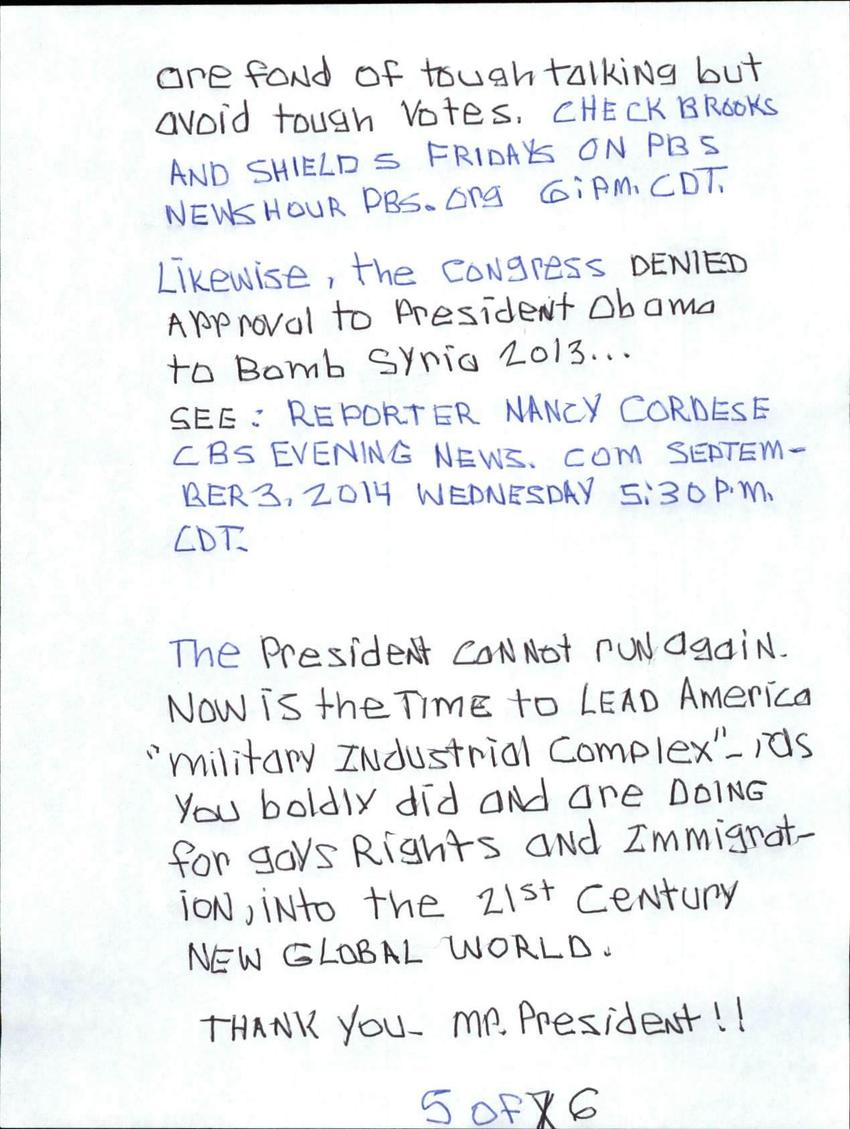 are fond of tough talking but
avoid tough Votes. CHECK BROOKS
AND SHIELDS FRIDAYS ON PBS
NEWSHOUR PBS.org 6:PM. CDT.
Likewise, the Congress DENIED
Approval to President Obama
to Bomb Syria 2013...
SEE: REPORTER NANCY CORDESE
CBS EVENING NEWS. COM SEPTEM-
BER 3, 2014 WEDNESDAY 5:30 P.M.
CDT.
The President CANNot rUN agaiN.
NOW is the TIME to LEAD America
"military INdustrial Complex"-, as
You boldly did and are DOING
for gays Rights and Immigrat-
ioN, iNto the 21st CeNtury
NEW GLOBAL WORLD.
THANK You- Mr. PresideNt!!
5 of 6